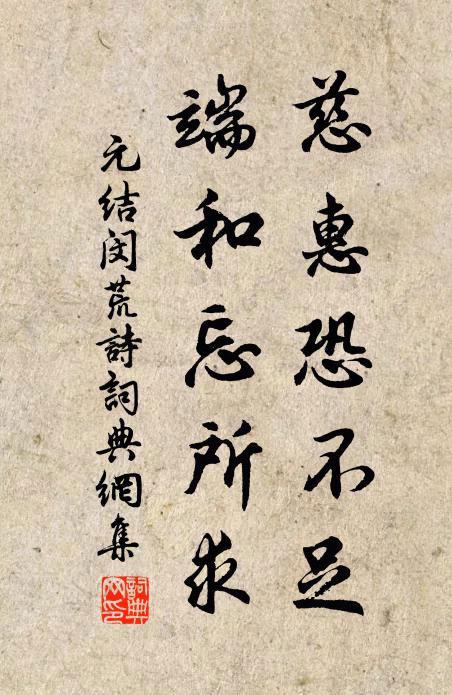 慈惠恐不足
端和忘所求
元结闵荒詩詞典網集
詞典
网印